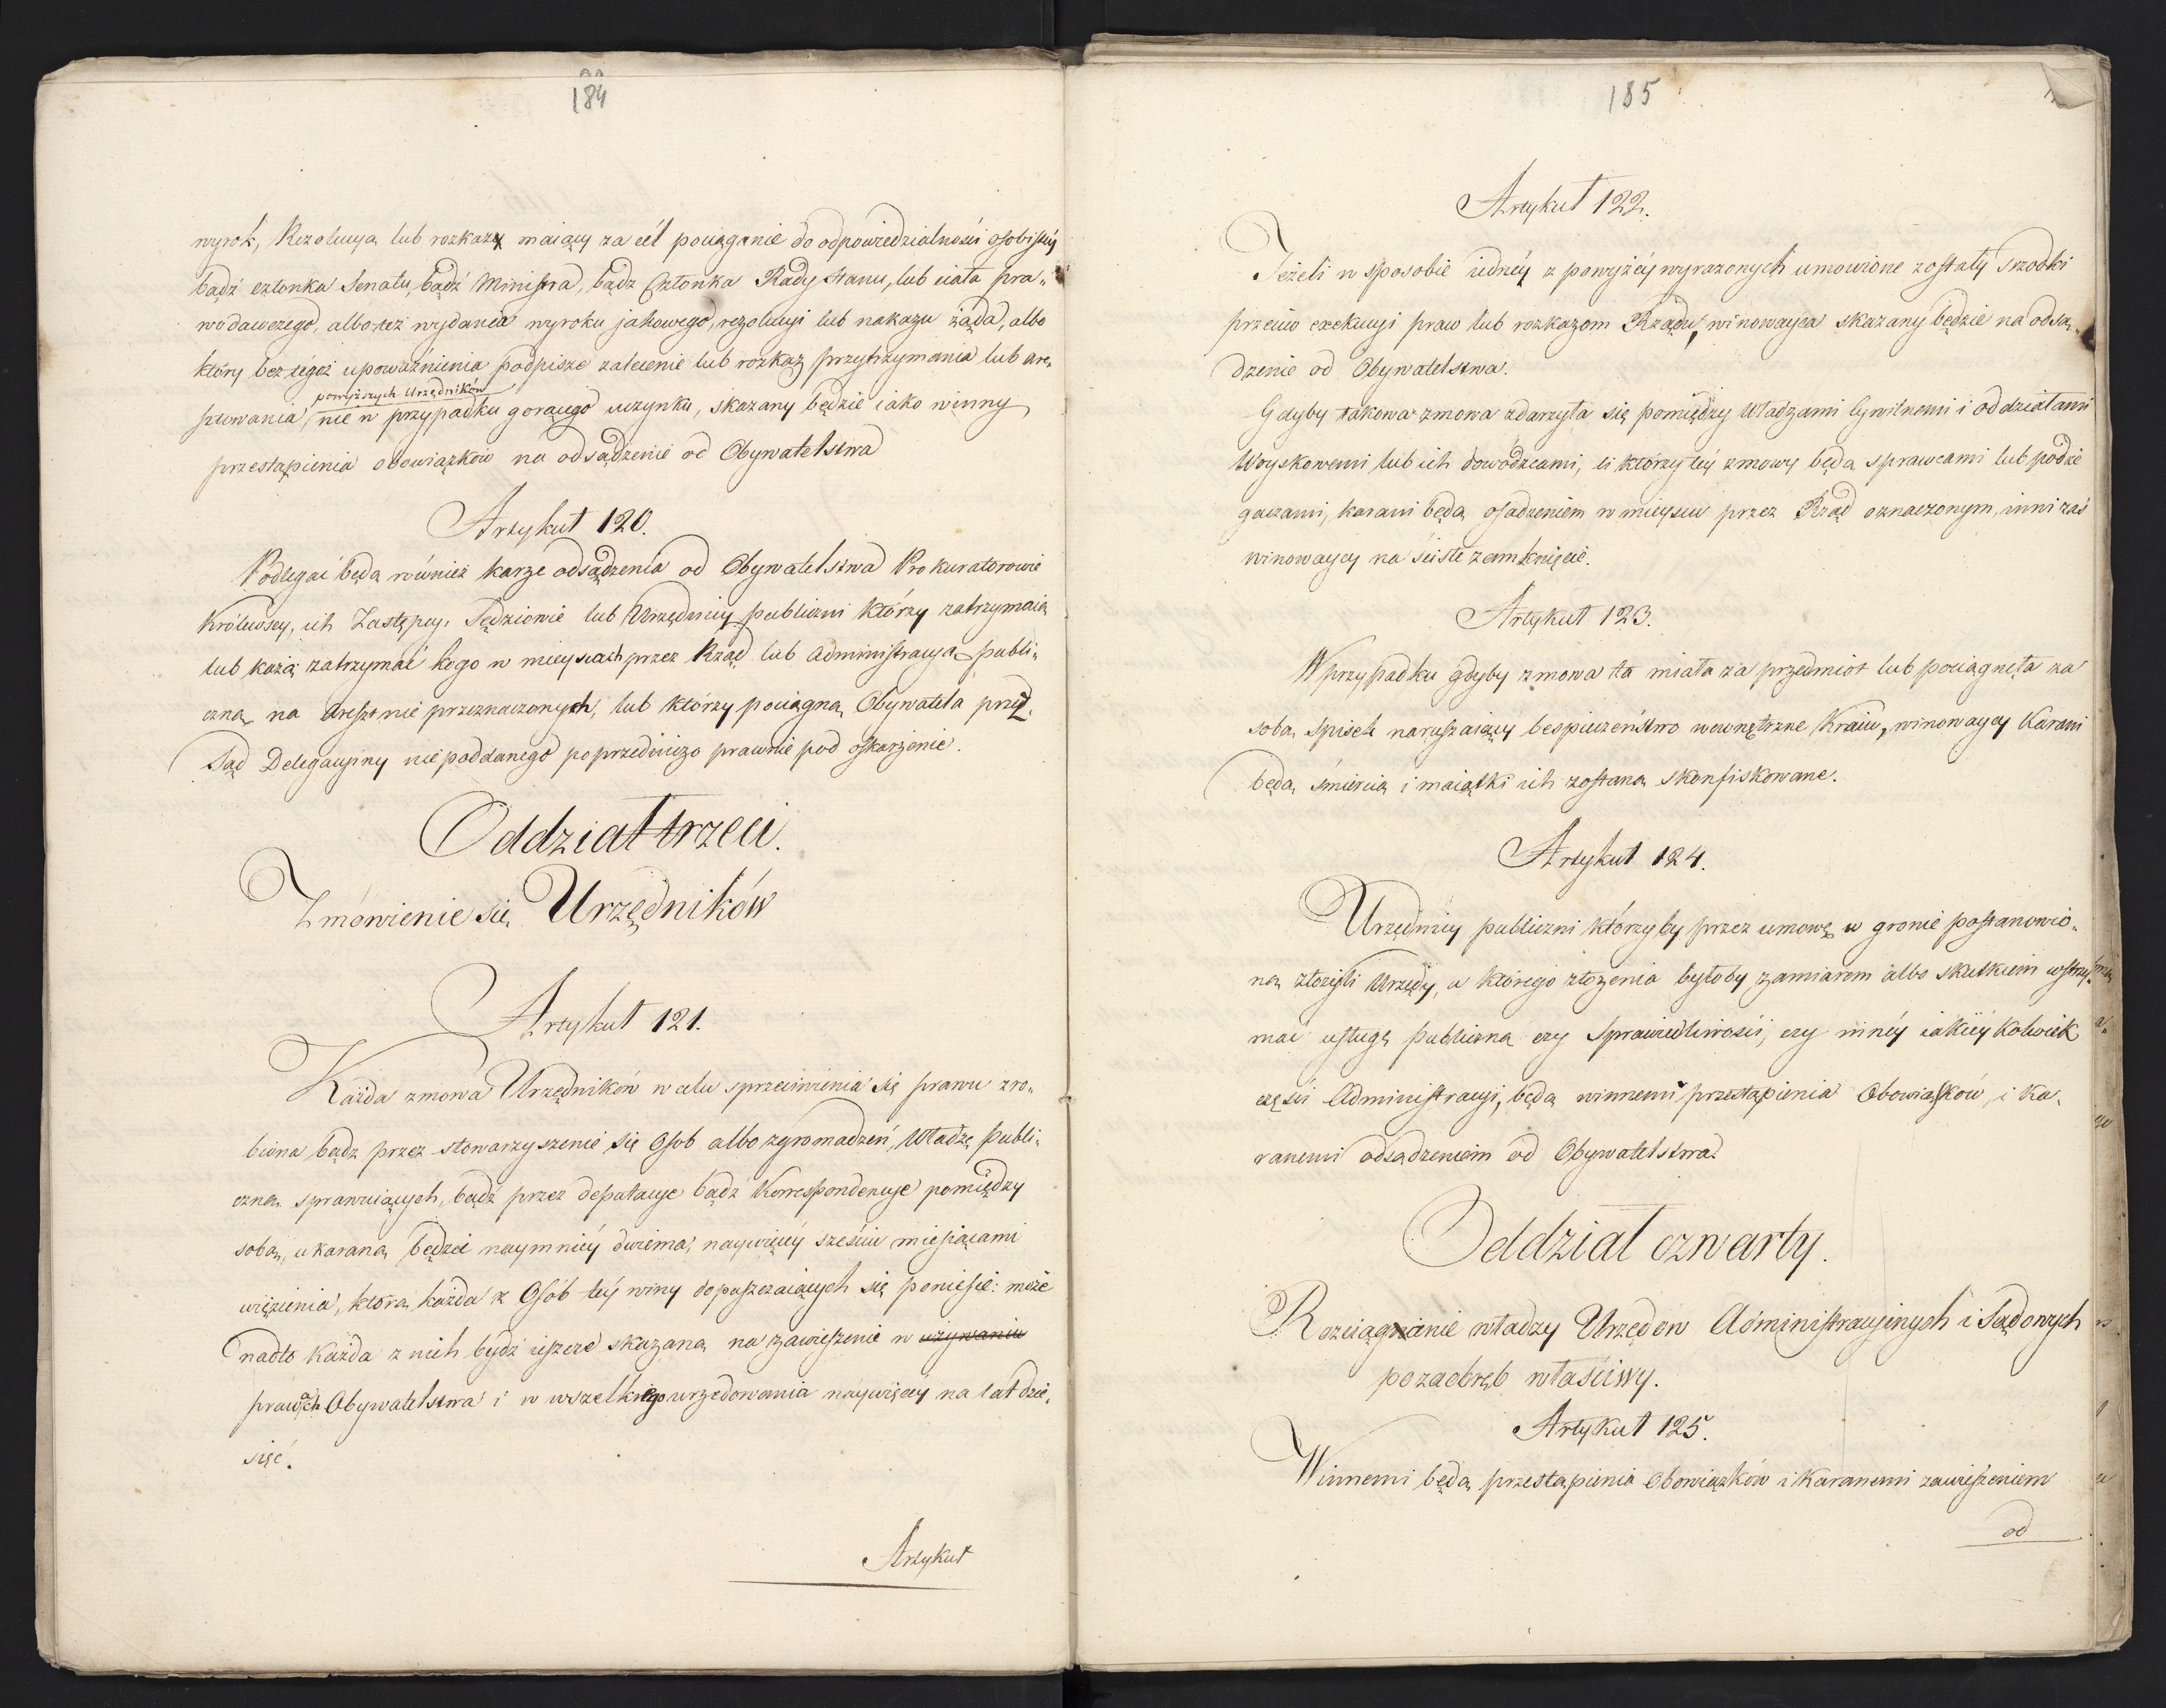 184
wyrok, Rezolucyą lub rozkazy maiący za cél pociąganie do odpowiedzialności osobistéy
bądź członka Senatu, bądź Ministra, bądź Członka Rady Stanu, lub ciała pra„
wodawczego, albo też wydania wyroku jakowego, rezolucyi lub nakazu żąda, albo
który bez tégoż upoważnienia podpisze zalecenie lub rozkaz przytrzymania lub are„
powyższych Urzędników
sztowania nie w przypadku gorącego uczynku, skazany będzie iako winny
przestąpienia obowiązków na odsądzenie od Obywatelstwa
Artykuł 120.
Podlegać będą również karze odsądzenia od Obywatelstwa Prokuratorowie
Królewscy, ich Zastępcy, Sędziowie lub Urzędnicy publiczni którzy zatrzymaią
lub każą zatrzymać kogo w mieyscach przez Rząd lub administracyą publi„
czną na areszt nie przeznaczonych, lub którzy pociągną Obywatela przed
Sąd Delegacyiny nie poddanego poprzedniczo prawnie pod oskarżenie.
Oddział trzeci.
Zmówienie się Urzędników
Artykuł 121.
Każda zmowa Urzędników w celu sprzeciwienia się prawu zro„
biona bądz przez stowarzyszenie się Osob albo zgromadzeń, Władzę publi„
czną sprawuiących, bądź przez deputacye bądź Korrespondencye pomiędzy
sobą, ukaraną będzie naymniéy dwiema, naywięcéy sześciu miesiącami
więzienia, którą każda z Osób téy winy dopuszczaiących się poniesie: może
nadto każda z nich bydź ieszcze skazaną na zawieszenie w używaniu
prawach Obywatelstwa i w wszelkiego urzędowania naywięcéy na lat dzie„
sięć.
Artykuł
185
Artykuł 122.
Jeżeli w sposobie iednéy z powyżéy wyrazonych umowione zostały Srzodki
przeciw exekucyi praw lub rozkazom Rządu, winowayca skazany będzie na odsą„
dzenie od Obywatelstwa.
Gdyby takowa zmowa zdarzyła się pomiędzy Władzami Cywilnemi i oddziałami
Woyskowemi lub ich dowódzcami, ci którzy téy zmowy będą sprawcami lub podże
gaczami, karani będą osadzeniem w mieyscu przez Rząd oznaczonym, inni zaś
winowaycy na ściste zamknięcie.
Artykuł 123.
W przypadku gdyby zmowa ta miała za przedmiot lub pociągnęła za
sobą, spisek naruszaiący bespieczeństwo wewnętrzne Kraiu, winowaycy Karani
będą śmiercią i maiątki ich zostaną skonfiskowane.
Artykuł 124.
Urzędnicy publiczni którzyby przez umowę w gronie postanowio„
ną złożyli Urzędy, a którego złożenia byłoby zamiarem albo skutkiem wstrzy„
mać usługę publiczną czy Sprawiedliwości, czy innéy iakiéy kolwiek
części Administracyi, będą winnemi przestąpienia Obowiązków, i ka„
ranemi odsądzeniem od Obywatelstwa.
Oddział czwarty.
Rozciągnianie władzy Urzędow Administracyinych i Sądowych
pozaobręb właściwy.
Artykuł 125.
Winnemi będą przestąpienia Obowiązków i Karanemi zawieszeniem
od